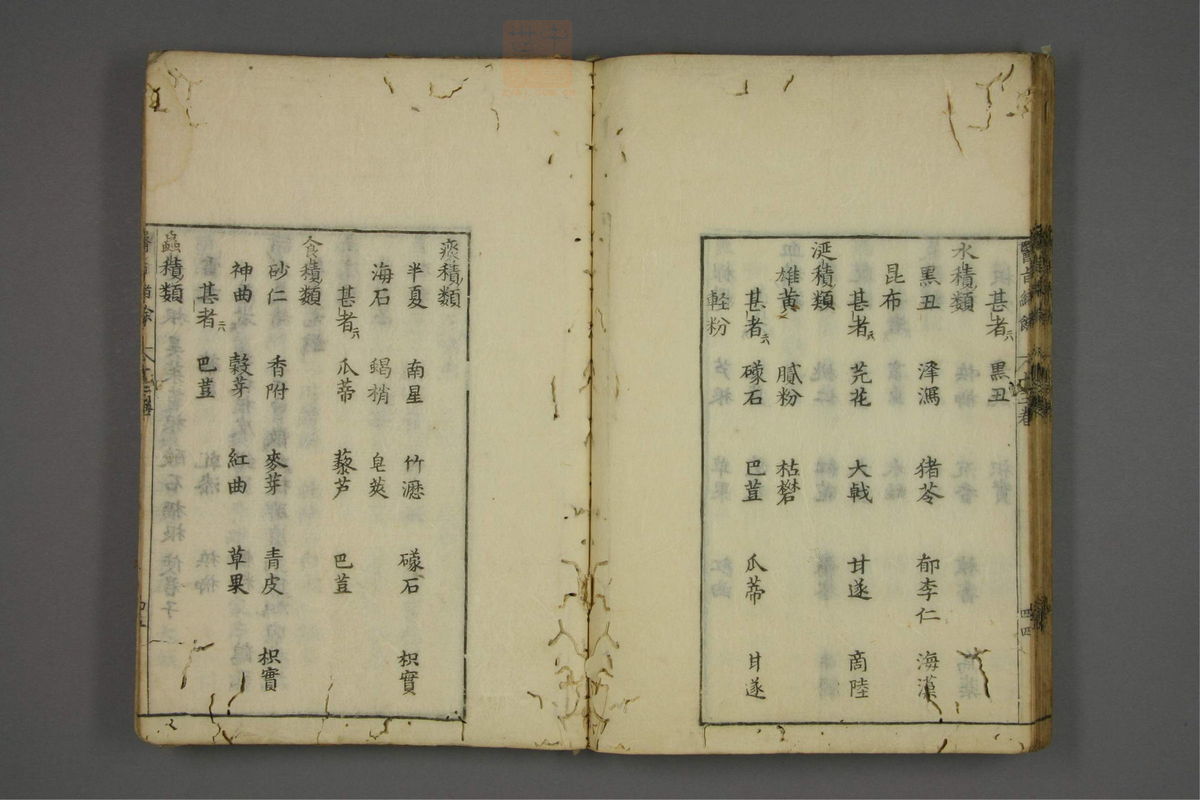 甚者 黑丑
水積類
黑丑 澤瀉 猪苓 郁李仁 海藻
昆布
甚者 芫花 大戟 甘遂 商陸
涎積類
雄黃 膩粉 枯礬
甚者 礞石 巴荳 瓜蒂 甘遂
輕粉
痰積類
半夏 南星 竹瀝 礞石 枳實
海石 蝎梢 皂莢
甚者 瓜蒂 藜芦 巴荳
食積類
砂仁 香附 麥芽 青皮 枳實
神曲 穀芽 紅曲 草果
甚者 巴荳
蟲積類